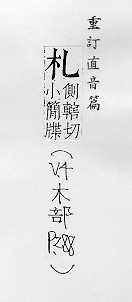 重訂直音篇
札
側轄切
小簡牒
(V.4木部P.288)